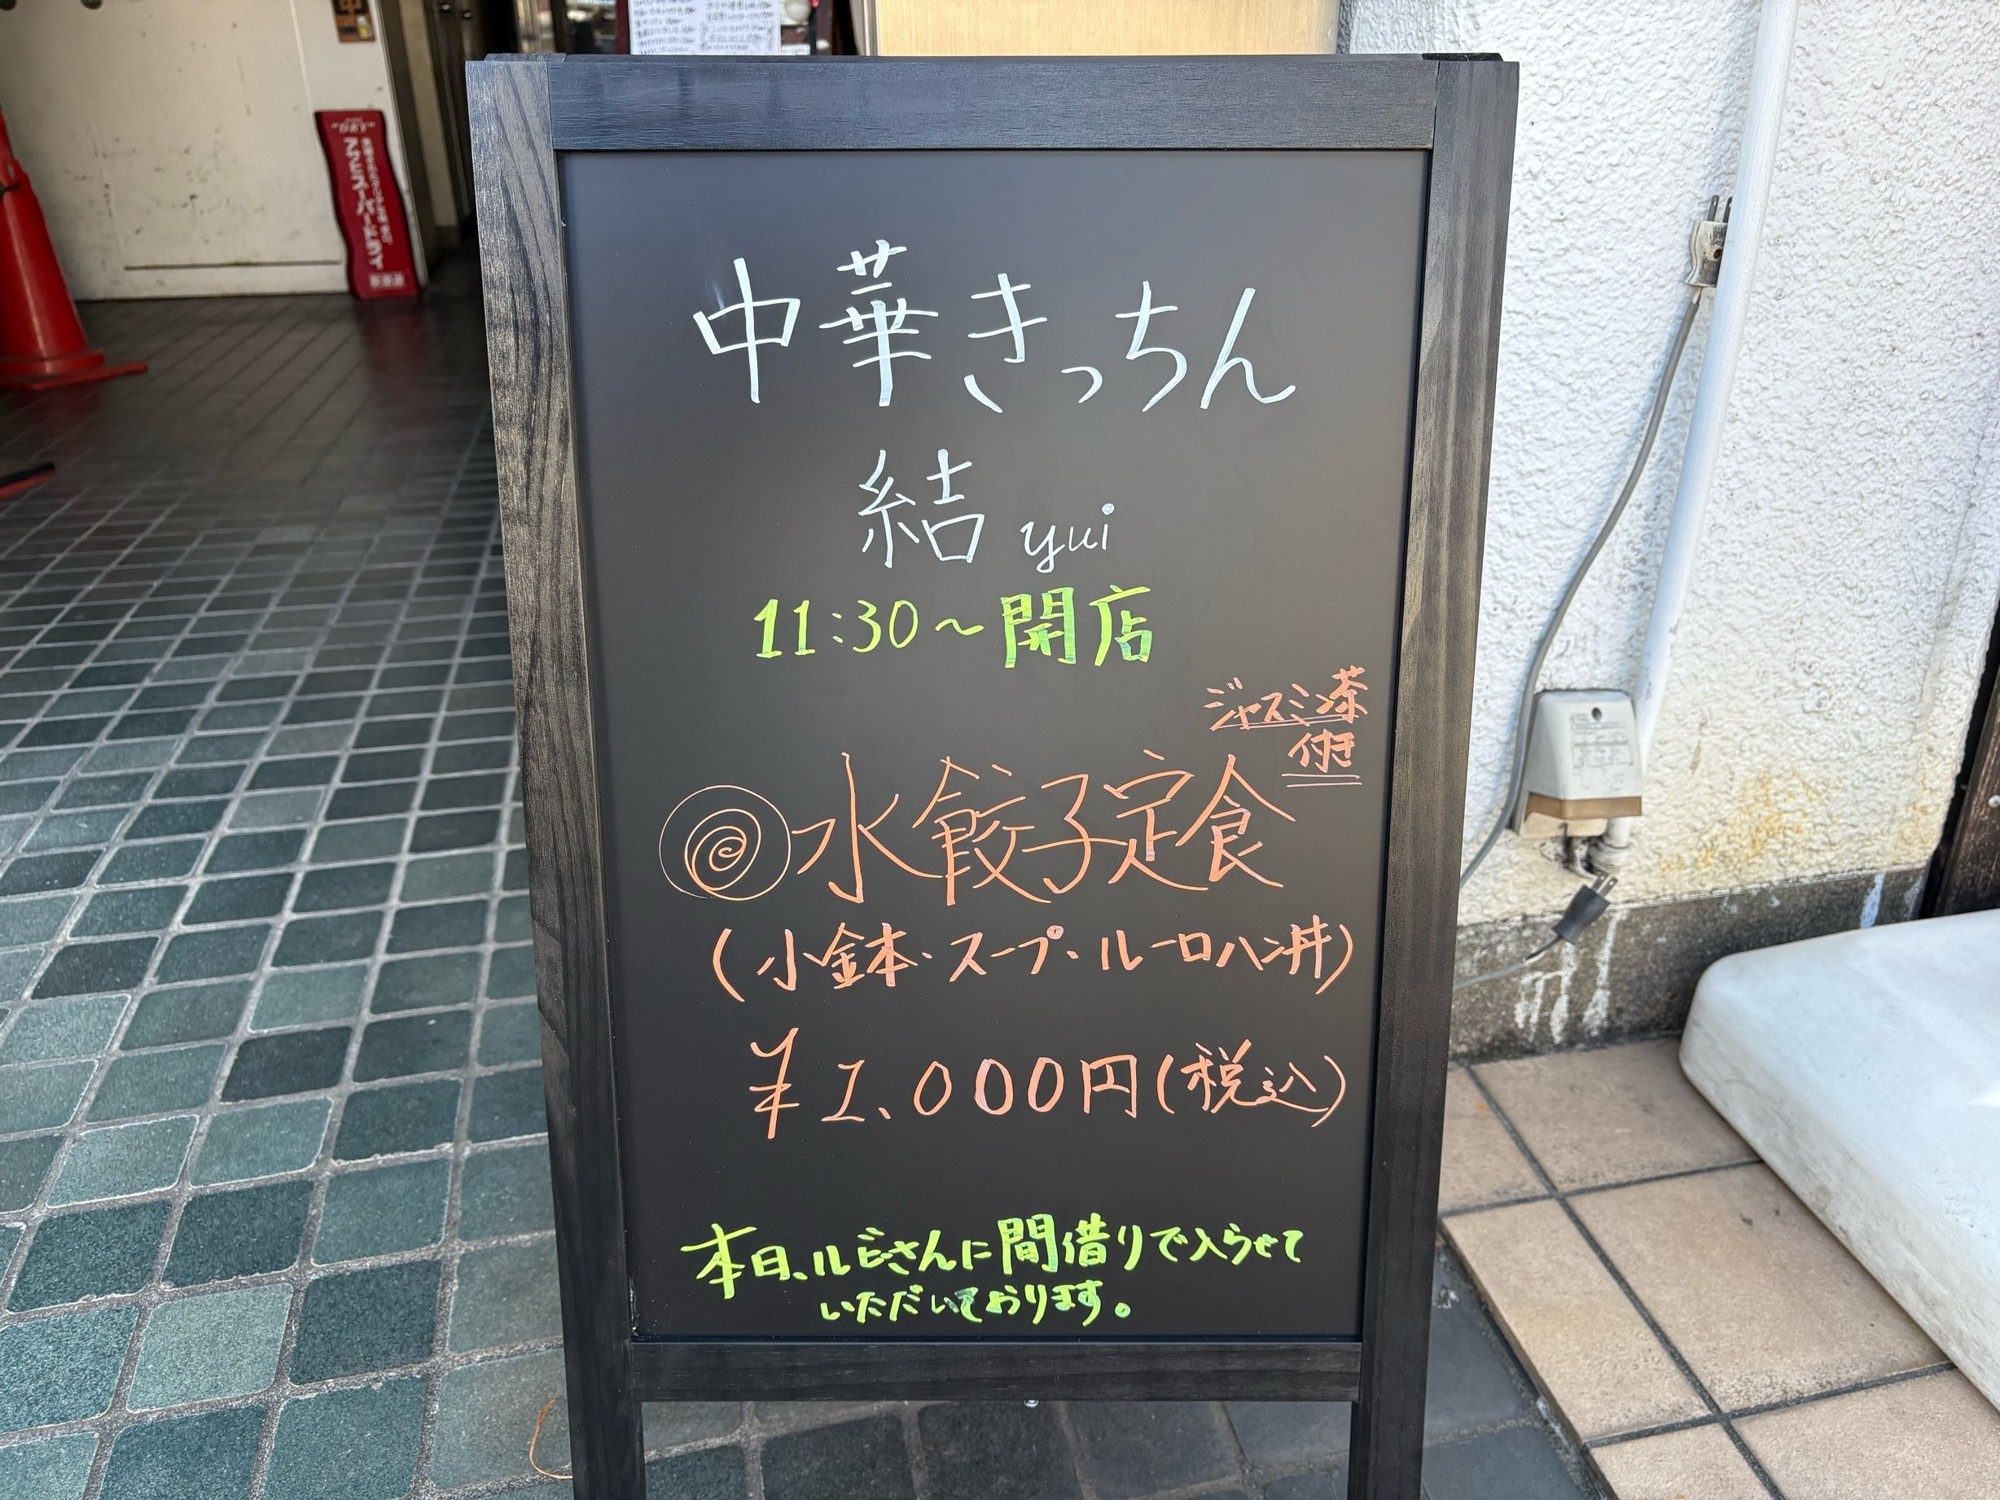 "DRY"
アサヒスーパードライ
中華きっちん
結 yui
11:30～開店
ジャスミン茶
付き
水餃子定食
(小金本・スープ・ルーロハン丼)
¥1,000円(税込)
本日、ルビさんに間借りで入らせて
いただいております。